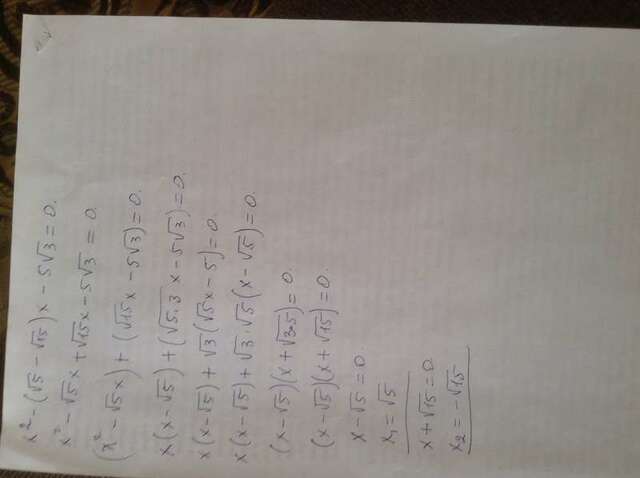 x² - (√5 - √15)x - 5√3 = 0.
x² - √5x + √15x - 5√3 = 0.
(x² - √5x) + (√15x - 5√3) = 0.
x(x - √5) + (√5·3 x - 5√3) = 0.
x(x - √5) + √3(√5x - 5) = 0.
x(x - √5) + √3·√5(x - √5) = 0.
(x - √5)(x + √3·5) = 0.
(x - √5)(x + √15) = 0.
x - √5 = 0.
x₁ = √5
x + √15 = 0
x₂ = -√15